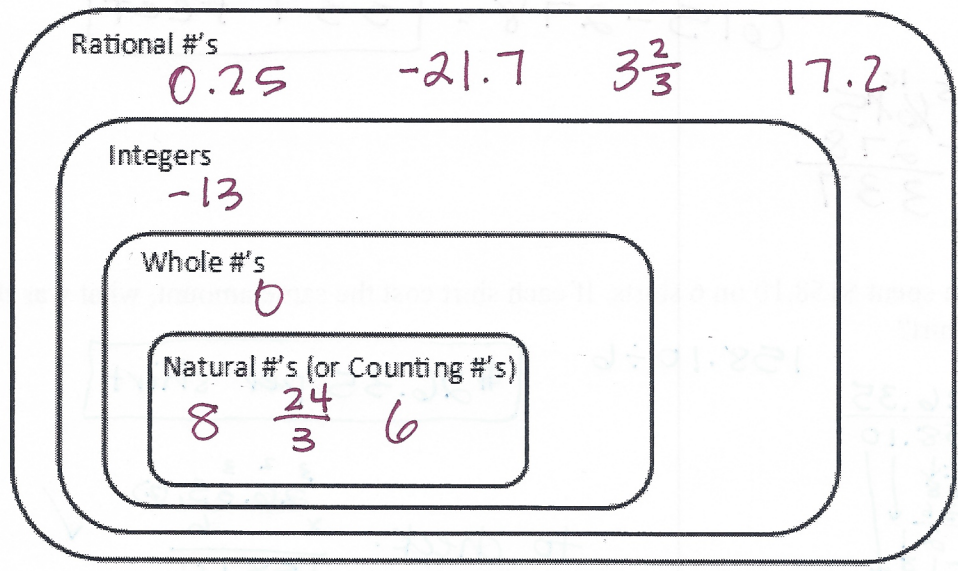 Rational #'s
0.25 -21.7 3 2/3 17.2
Integers
-13
Whole #'s
0
Natural #'s (or Counting #'s)
8 24/3 6